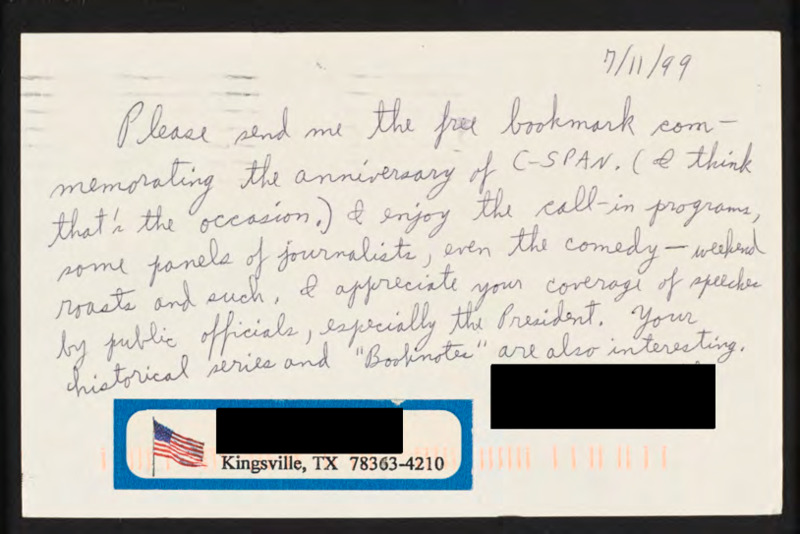 7/11/99
Please send me the free bookmark com-
memorating the anniversary of C-SPAN. (I think
that's the occasion.) I enjoy the call-in programs,
some panels of journalists, even the comedy — weekend
roasts and such. I appreciate your coverage of speeches
by public officials, especially the President. Your
historical series and "Booknotes" are also interesting.
Kingsville, TX 78363-4210